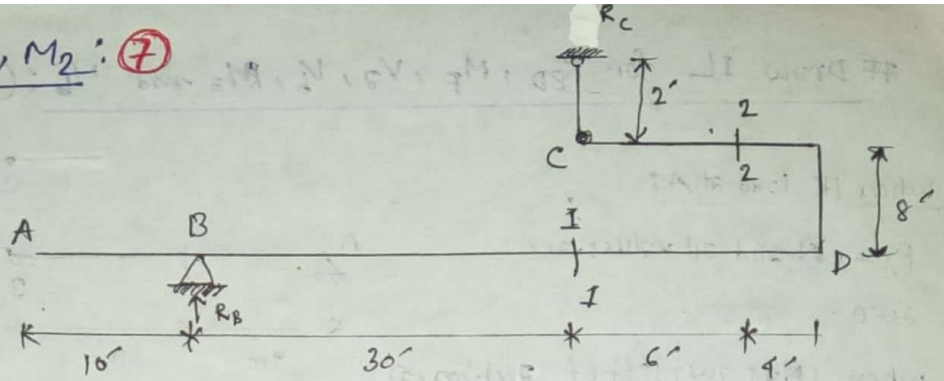 , M2: 7
RC
2'
2
C
2
8'
A
B
I
D
I
RB
10'
30'
6'
4'